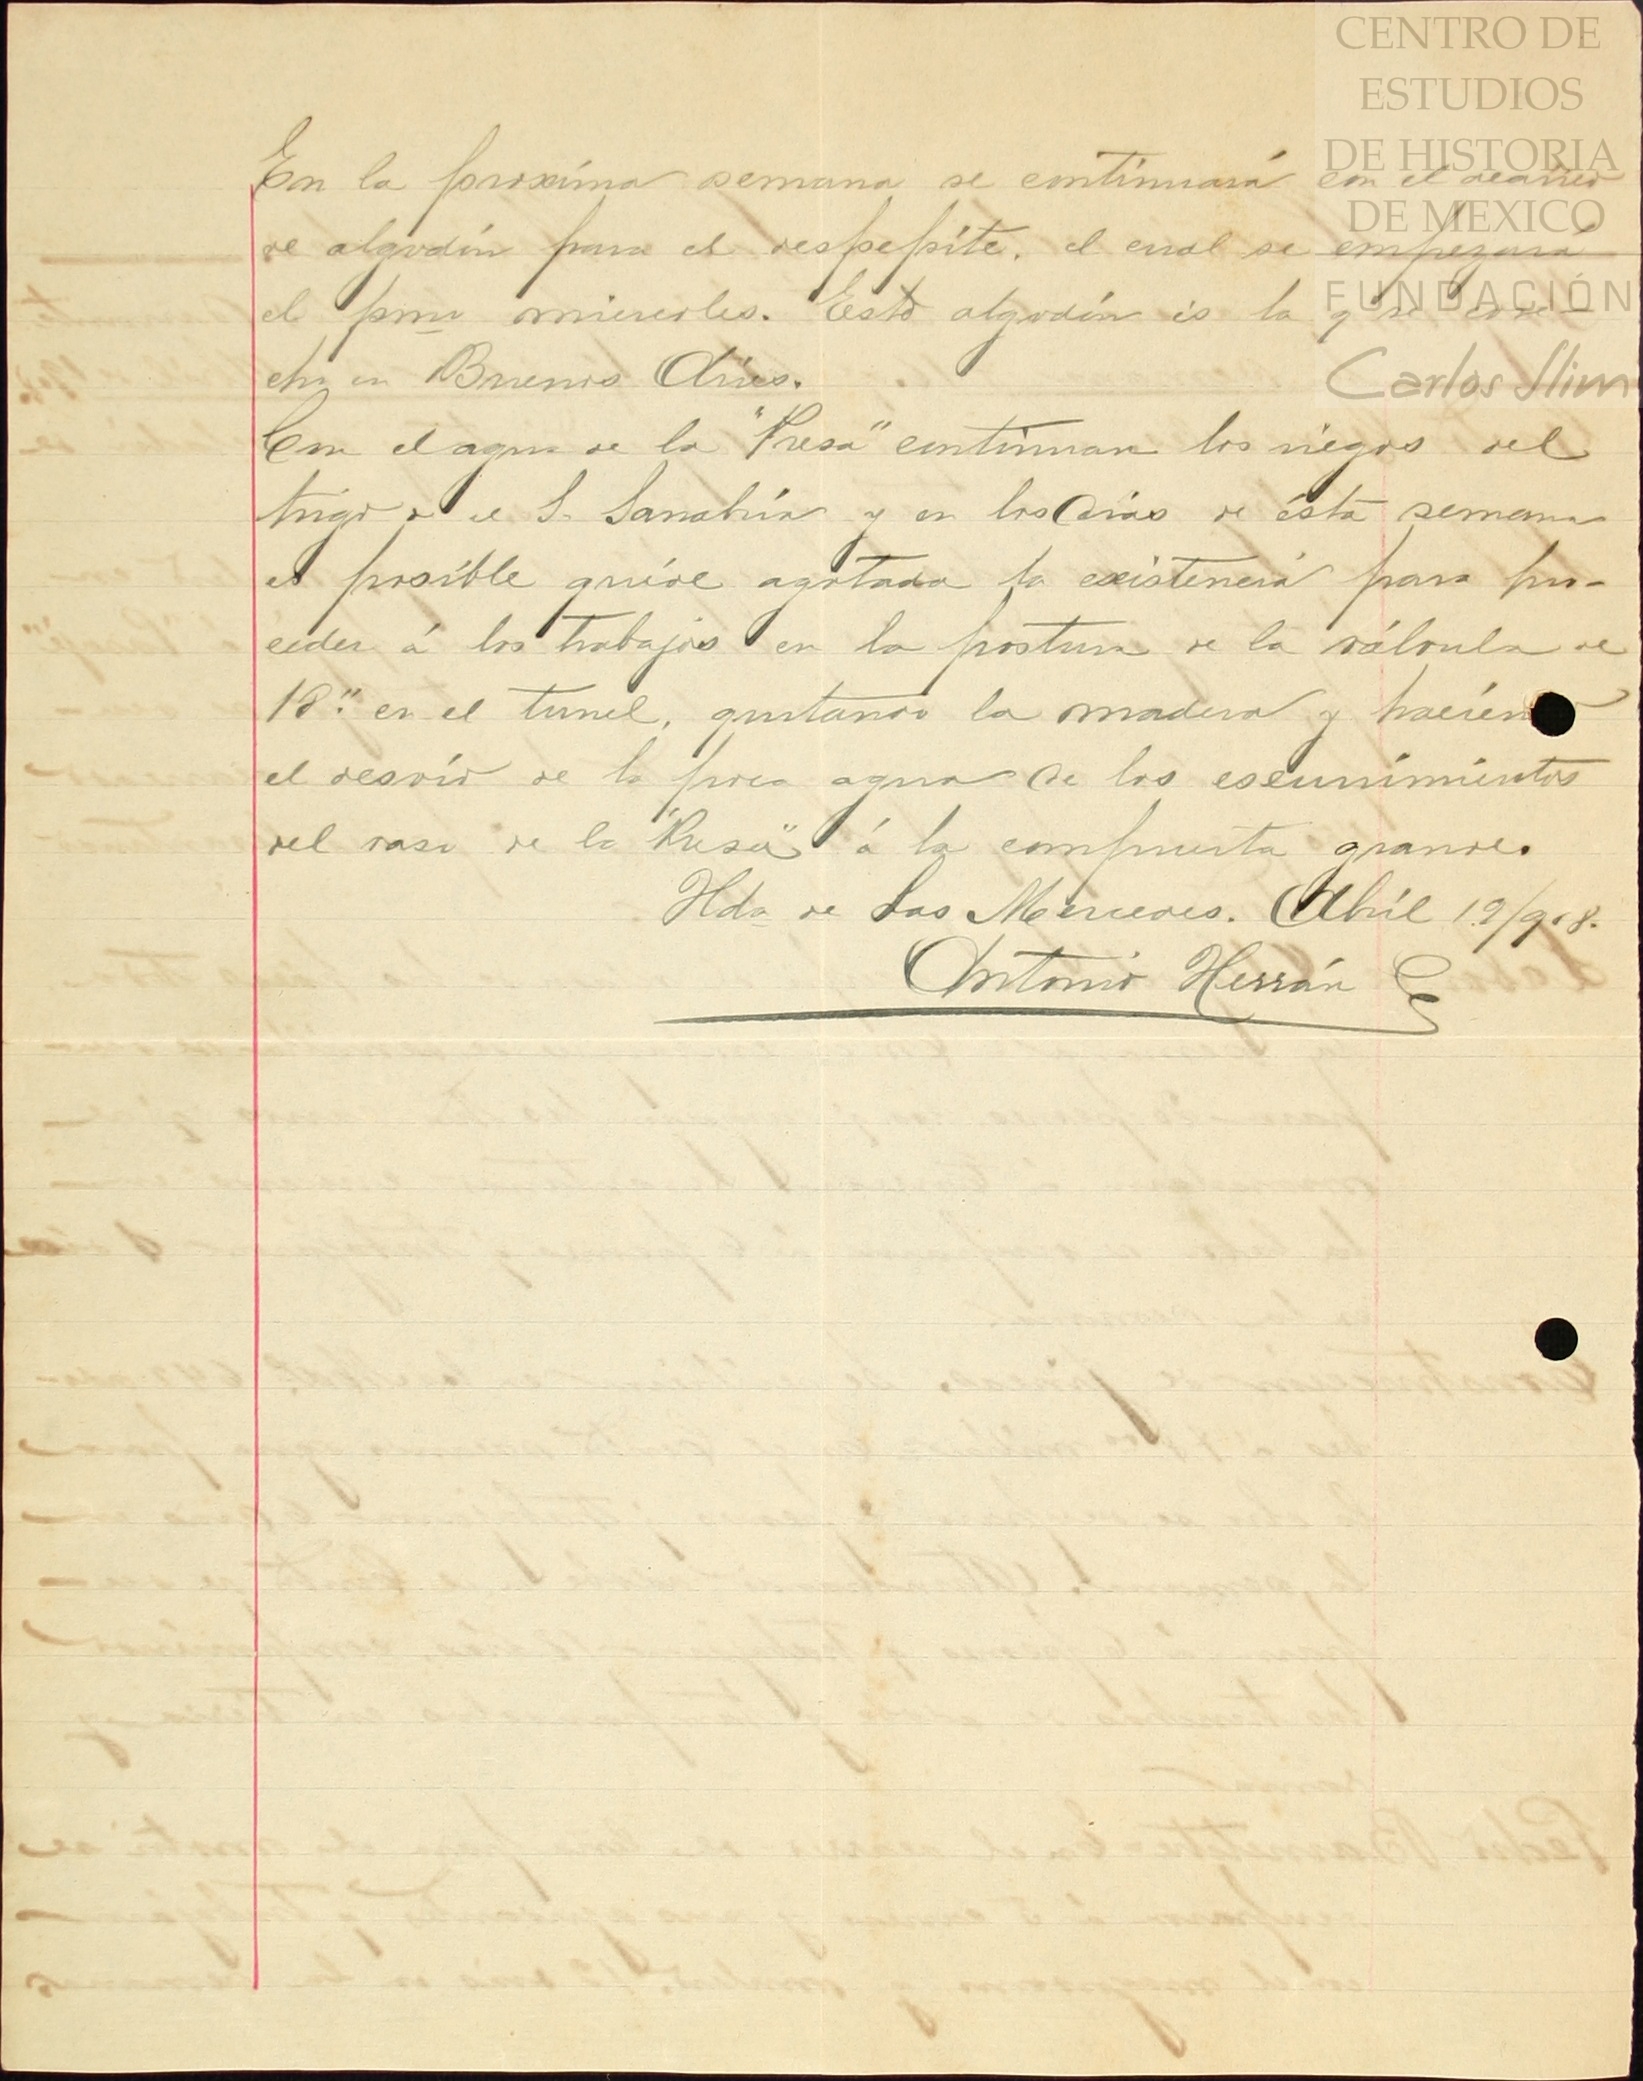 CENTRO DE
ESTUDIOS
DE HISTORIA
DE MEXICO
FUNDACIÓN
Carlos Slim
En la proxíma semana se contínuará con el acarreo
de algodón para el despepíte, el cual se empezará
el pmo miercoles. Este algodón es la q. se cose-
cho en Buenos Aires.
Con el agua de la "Presa" contínuan los riegos del
trigo de S. Sanabria y en los días de ésta semana
es posíble quéde agotada la existencia para pro-
ceder á los trabajos en la postura de la válvula de
18" en el tunel, quitando la madera y
el desvío de la poca agua de los escurrimientos
del vaso de la "Presa" á la compuerta grande.
Hda de Las Mercedes. Abríl 19/908.
Antonio Herrán